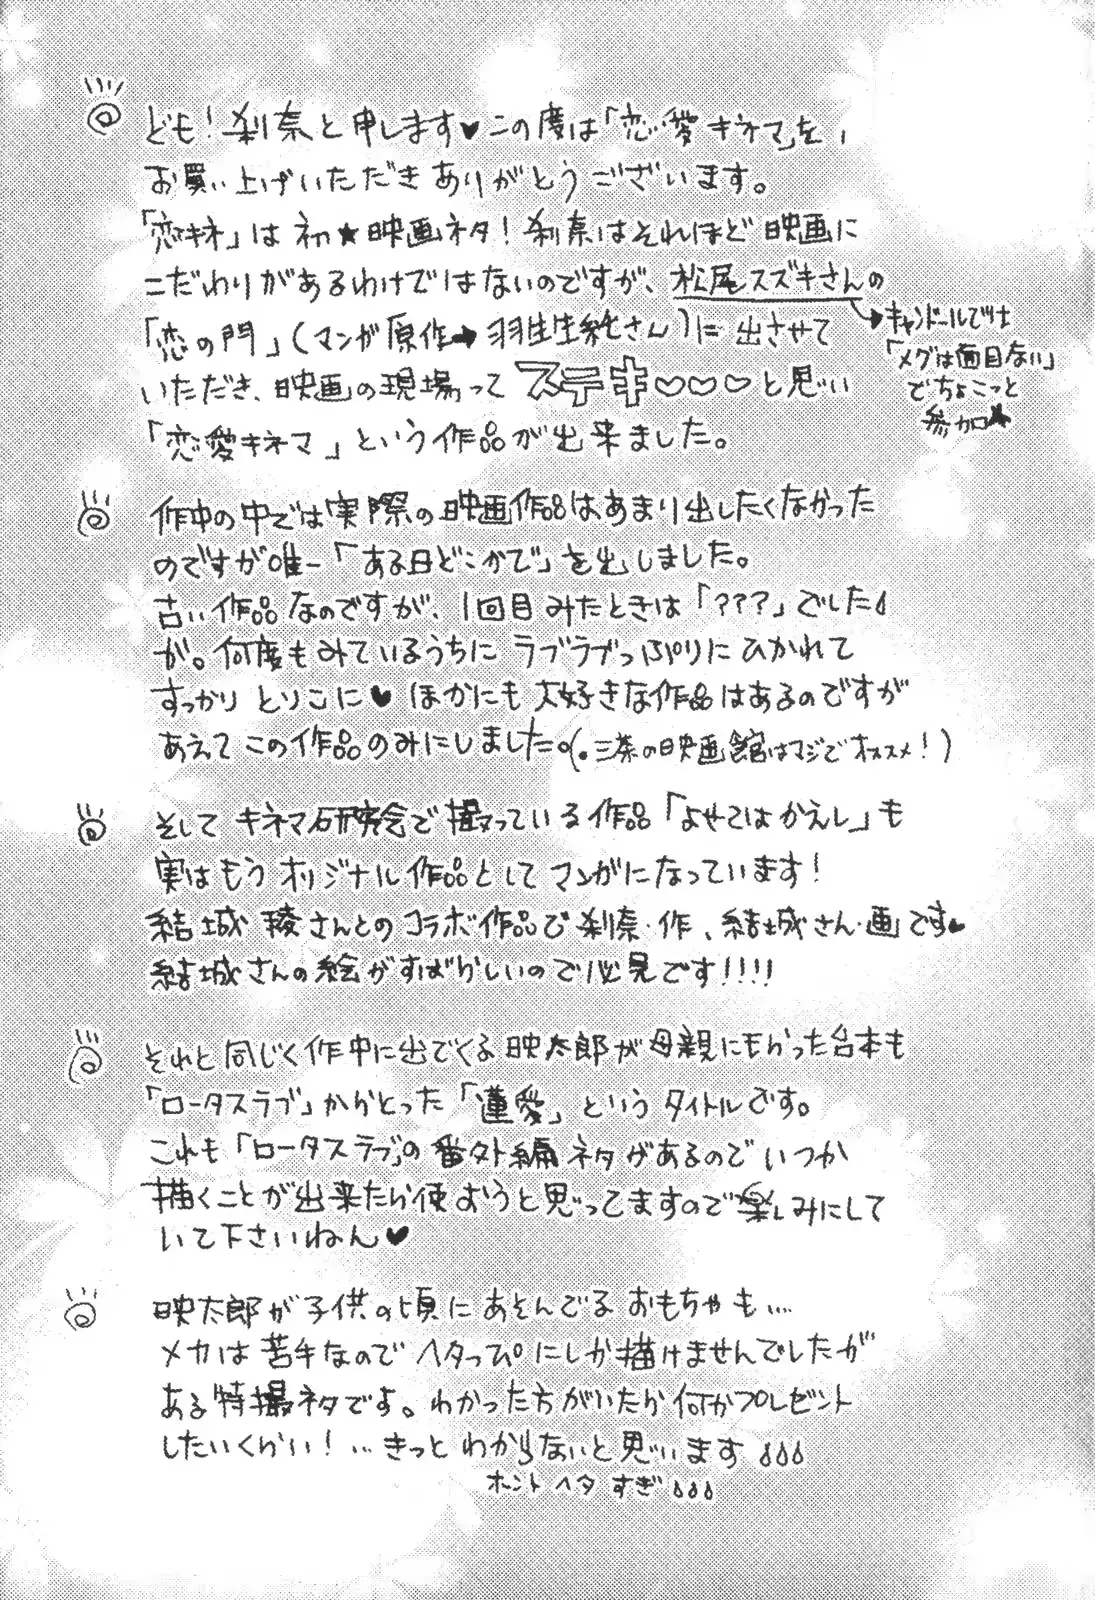 ども!刹奈と申します♥この度は「恋愛キネマ」を、
お買い上げいただきありがとうございます。
「恋キネ」は初★映画ネタ!刹奈はそれほど映画に
こだわりがあるわけではないのですが、松尾スズキさんの
「恋の門」(マンガ原作→羽生生純さん)に出させて
いただき、映画の現場ってステキ♡♡♡と思い
「恋愛キネマ」という作品が出来ました。
→キャンドールでは
「メグは面目ない」
でちょこっと
参加★
作中の中では実際の映画作品はあまり出したくなかった
のですが唯一「ある日どこかで」を出しました。
古い作品なのですが、1回目みたときは「???」でした
が。何度もみているうちにラブラブっぷりにひかれて
すっかりとりこに♥ほかにも大好きな作品はあるのですが
あえてこの作品のみにしました。(。三茶の映画館はマジでオススメ!)
そしてキネマ研究会で撮っている作品「よせてはかえし」も
実はもうオリジナル作品としてマンガになっています!
結城稜さんとのコラボ作品で刹奈・作、結城さん・画です♥
結城さんの絵がすばらしいので必見です!!!!
それと同じく作中に出てくる映太郎が母親にもらった台本も
「ロータスラブ」からとった「蓮愛」というタイトルです。
これも「ロータスラブ」の番外編ネタがあるのでいつか
描くことが出来たら使おうと思ってますので楽しみにして
いて下さいねん♥
映太郎が子供の頃にあそんでるおもちゃも…
メカは苦手なのでヘタっぴにしか描けませんでしたが
ある特撮ネタです。わかった方がいたら何かプレゼント
したいくらい!…きっとわからないと思います
ホントヘタすぎ